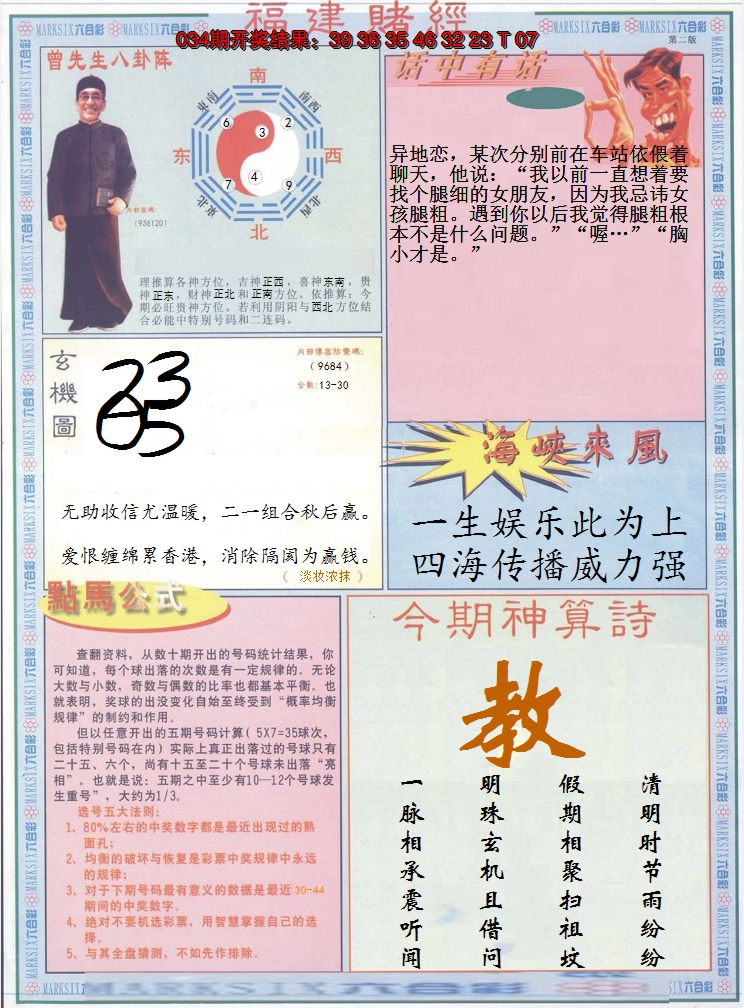 福建賭經
034期开奖结果：39 36 35 46 32 23 T 07
第二版
曾先生八卦阵
南
东南
南西
6
2
3
东
西
4
7
9
東北
北西
北
内部密碼:
(936120)
理推算各神方位，吉神正西，喜神东南，贵
神正东，财神正北和正南方位。依推算：今
期必旺贵神方位。若利用阴阳与西北方位结
合必能中特别号码和二连码。
话中有话
异地恋，某次分别前在车站依偎着
聊天，他说：“我以前一直想着要
找个腿细的女朋友，因为我忌讳女
孩腿粗。遇到你以后我觉得腿粗根
本不是什么问题。”“喔…”“胸
小才是。”
玄機圖
内部傳密防變碼:
(9684)
合数:13-30
无助收信尤温暖，二一组合秋后赢。
爱恨缠绵累香港，消除隔阂为赢钱。
（ 淡妆浓抹 ）
海峽來風
一生娱乐此为上
四海传播威力强
點馬公式
查翻资料，从数十期开出的号码统计结果，你
可知道，每个球出落的次数是有一定规律的。无论
大数与小数，奇数与偶数的比率也都基本平衡。也
就表明，奖球的出没变化自始至终受到“概率均衡
规律”的制约和作用。
但以任意开出的五期号码计算( 5X7=35球次，
包括特别号码在内）实际上真正出落过的号球只有
二十五、六个，尚有十五至二十个号球未出落“亮
相”。也就是说：五期之中至少有10—12个号球发
生重号”，大约为1/3。
选号五大法则:
1、80%左右的中奖数字都是最近出现过的熟
面孔；
2、均衡的破坏与恢复是彩票中奖规律中永远
的规律；
3、对于下期号码最有意义的数据是最近30-44
期间的中奖数字。
4、绝对不要机选彩票，用智慧掌握自己的选
择。
5、与其全盘猜测，不如先作排除。
今期神算詩
教
清明时节雨纷纷
假期相聚扫祖坟
明珠玄机且借问
一脉相承震听闻
MARKSIX六合彩